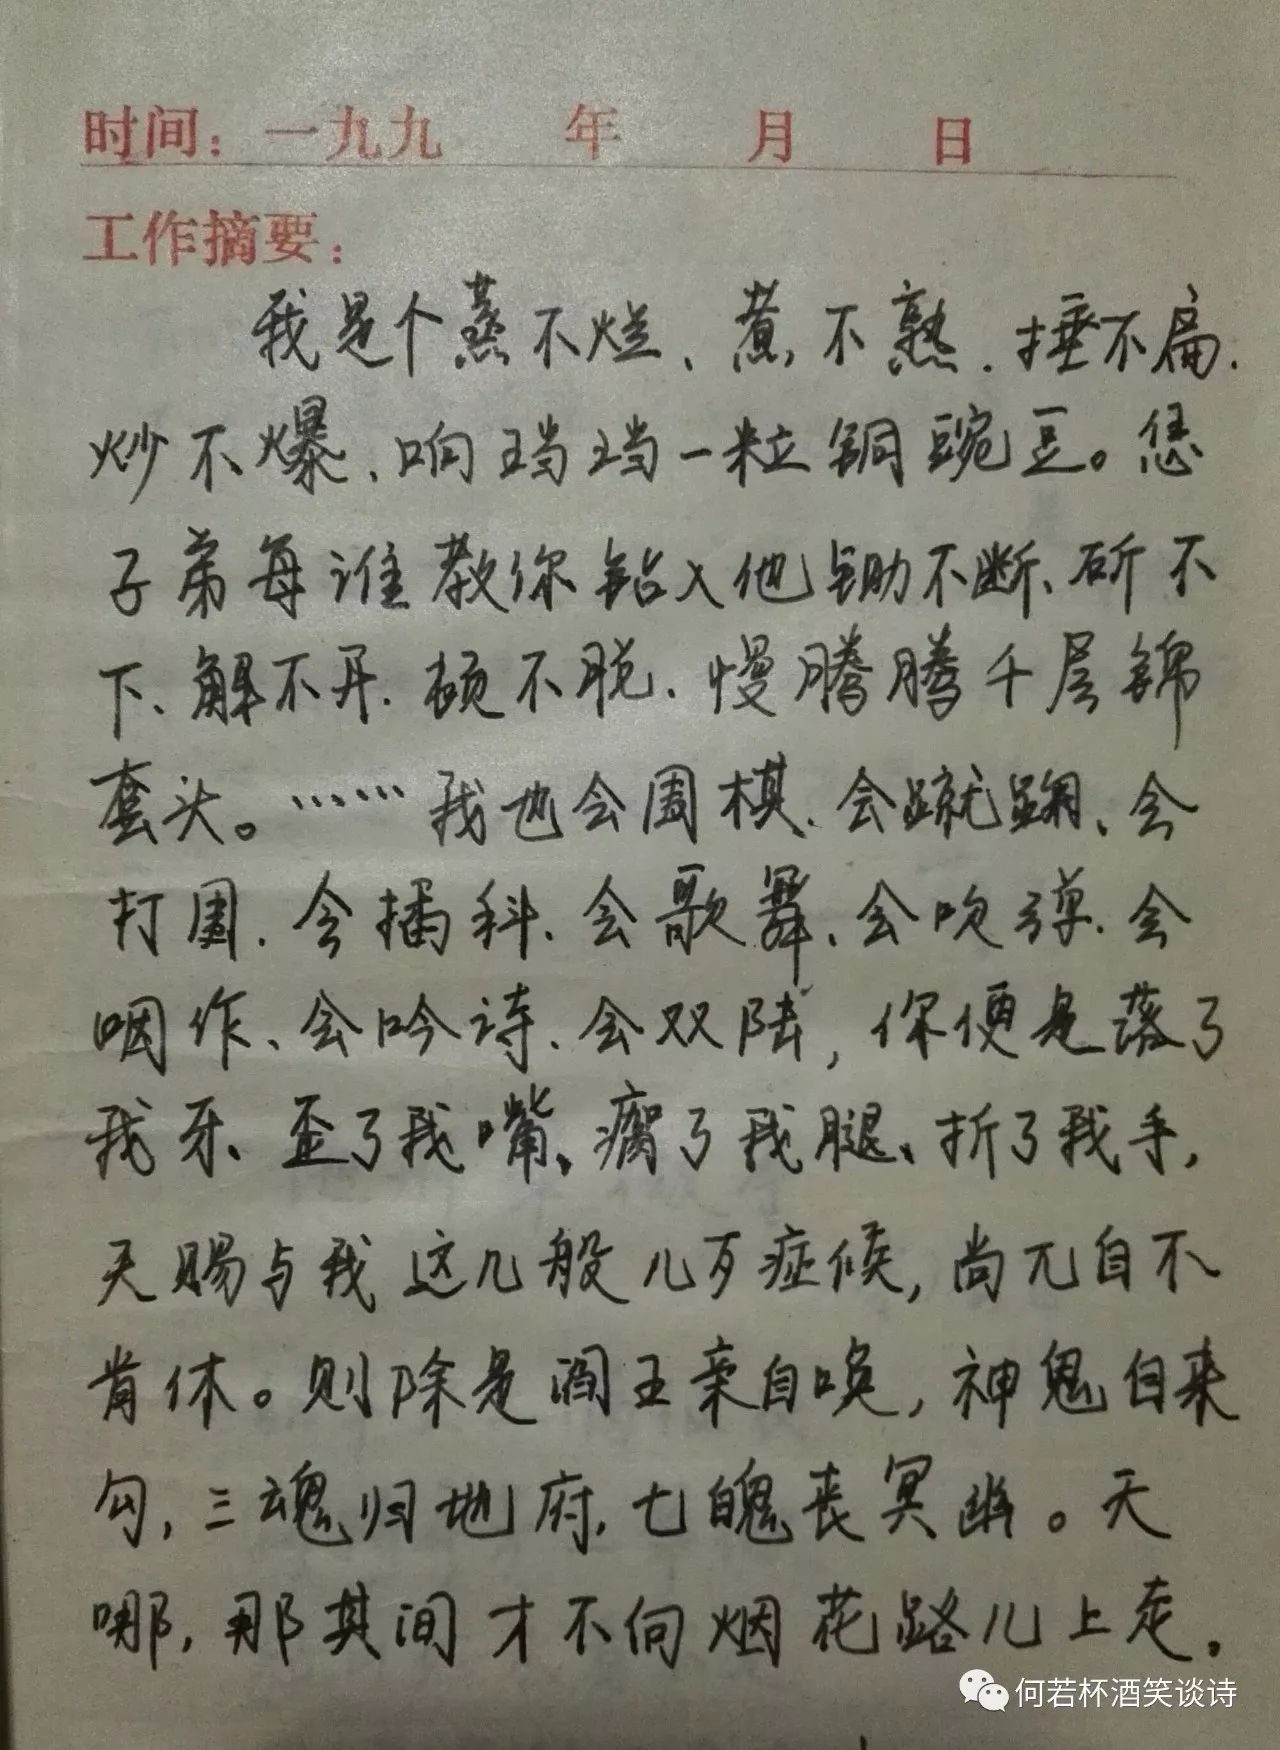 时间：一九九 年 月 日
工作摘要：
我是个蒸不烂、煮不熟、捶不扁、
炒不爆、响珰珰一粒铜豌豆。恁
子弟每谁教你钻入他锄不断、斫不
下、解不开、顿不脱、慢腾腾千层锦
套头。……我也会围棋、会蹴踘、会
打围、会插科、会歌舞、会吹弹、会
咽作、会吟诗、会双陆，你便是落了
我牙、歪了我嘴、瘸了我腿、折了我手，
天赐与我这几般儿歹症候，尚兀自不
肯休。则除是阎王亲自唤，神鬼自来
勾，三魂归地府，七魄丧冥幽。天
哪，那其间才不向烟花路儿上走。
何若杯酒笑谈诗